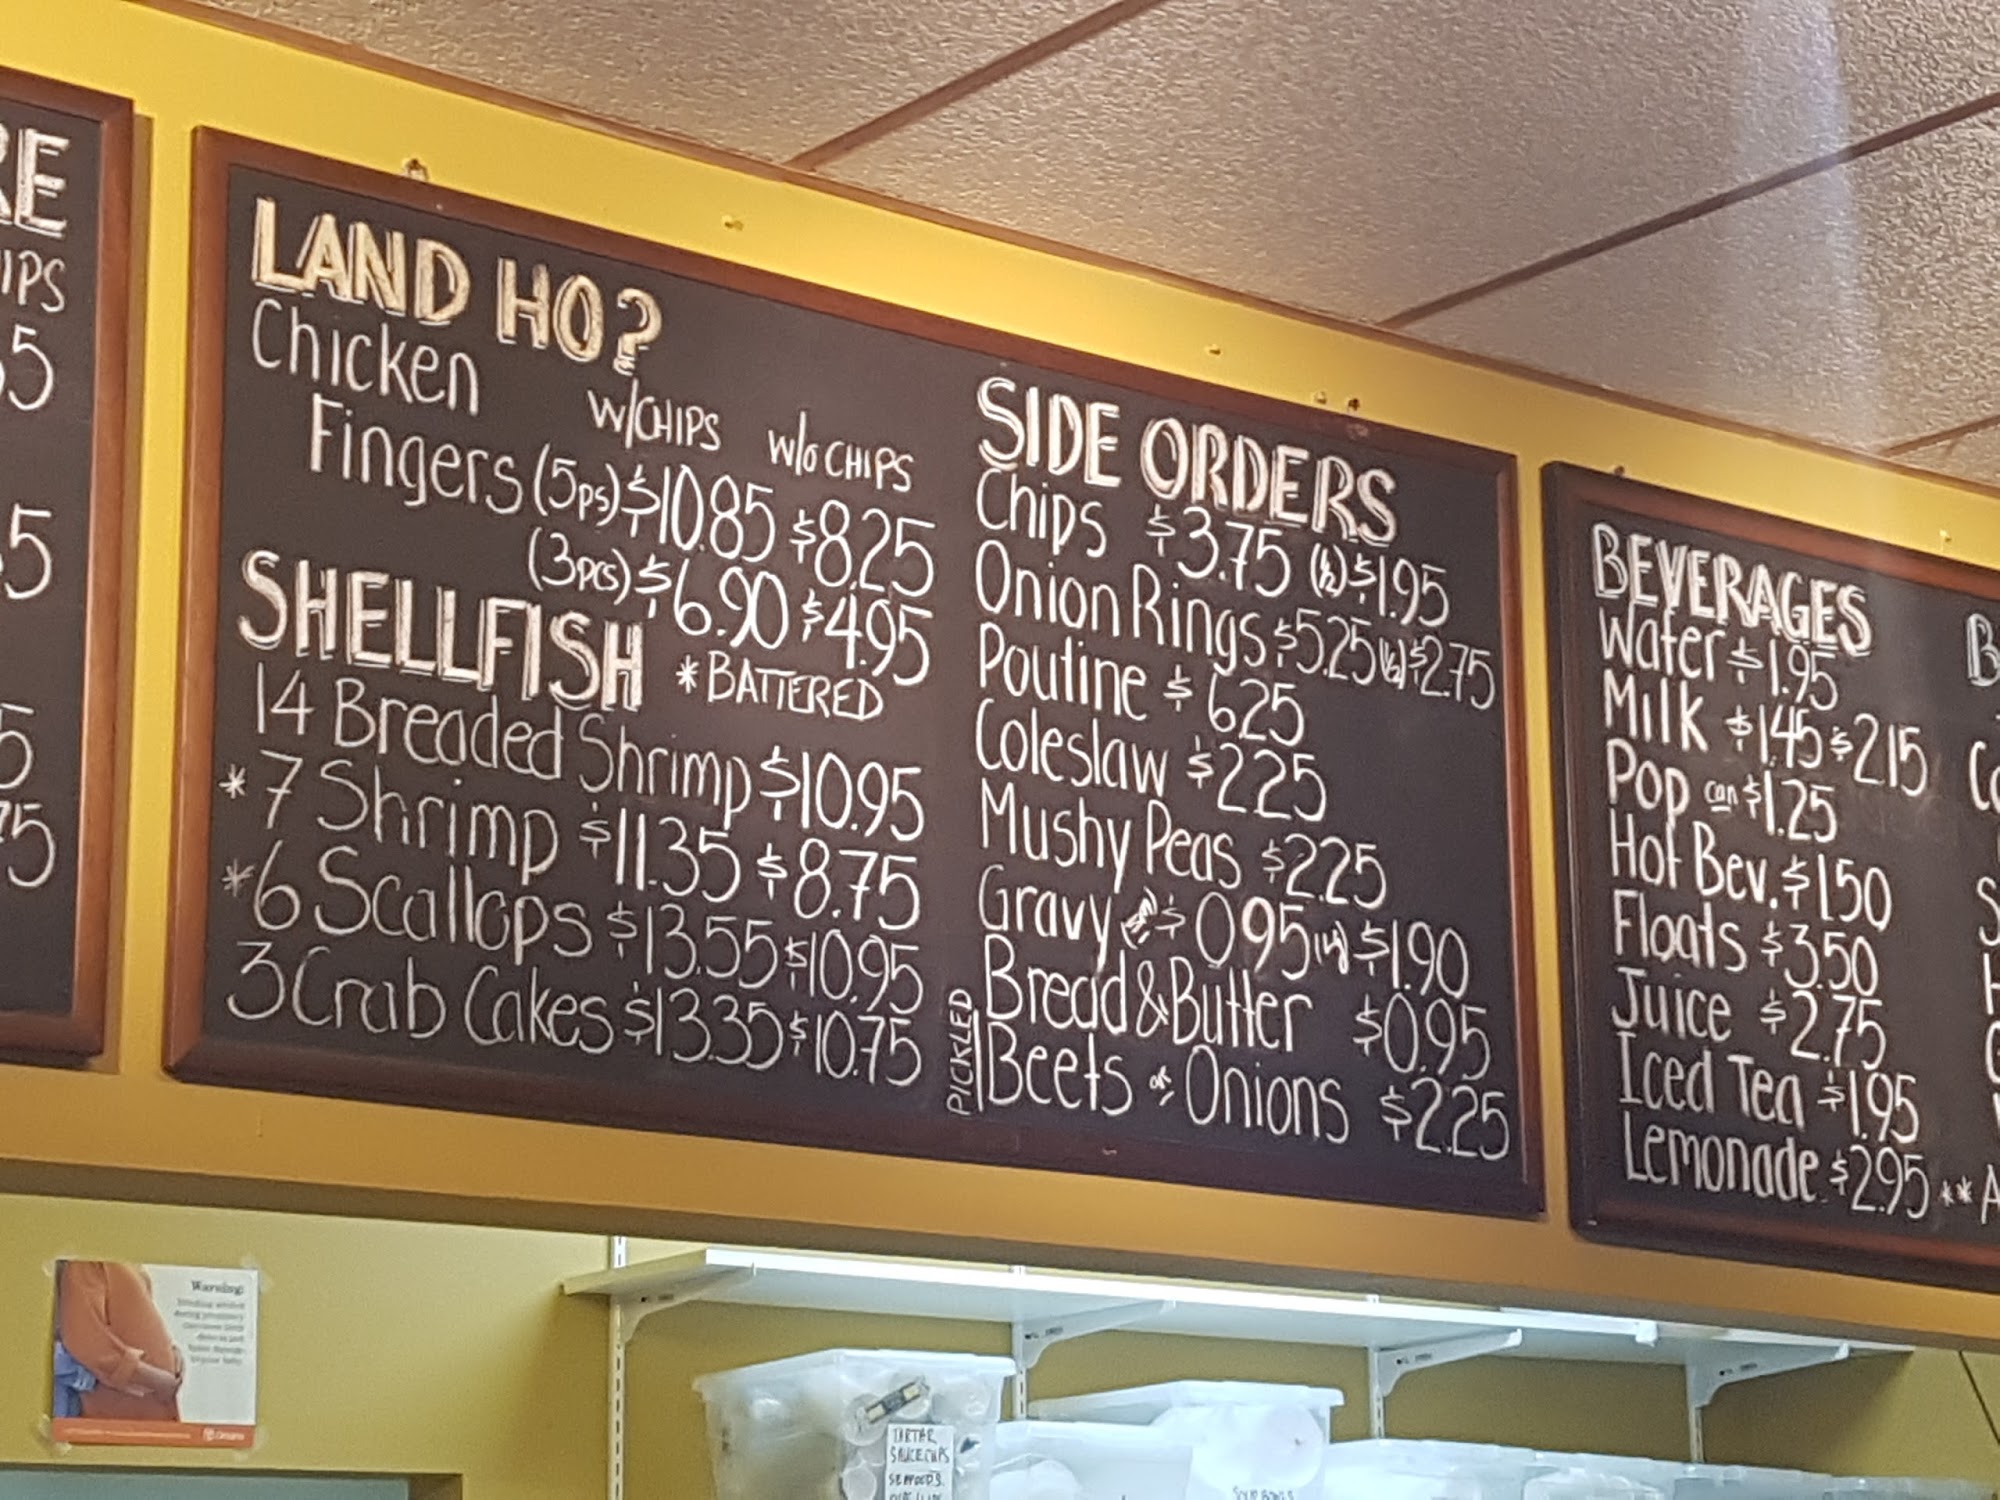 RE
IPS
5
5
5
75
LAND HO?
Chicken w/CHIPS w/o CHIPS
Fingers (5ps) $10.85 $8.25
(3pcs) $6.90 $4.95
SHELLFISH *BATTERED
14 Breaded Shrimp $10.95
*7 Shrimp $11.35 $8.75
*6 Scallops $13.55 $10.95
3 Crab Cakes $13.35 $10.75
SIDE ORDERS
Chips $3.75 (½) $1.95
Onion Rings $5.25 (½) $2.75
Poutine $6.25
Coleslaw $2.25
Mushy Peas $2.25
Gravy (sm) $0.95 $1.90
Bread & Butter $0.95
PICKLED Beets or Onions $2.25
BEVERAGES
Water $1.95
Milk $1.45 $2.15
Pop can $1.25
Hot Bev. $1.50
Floats $3.50
Juice $2.75
Iced Tea $1.95
Lemonade $2.95
**A
Warning:
Ontario
TARTAR
SAUCE CUPS